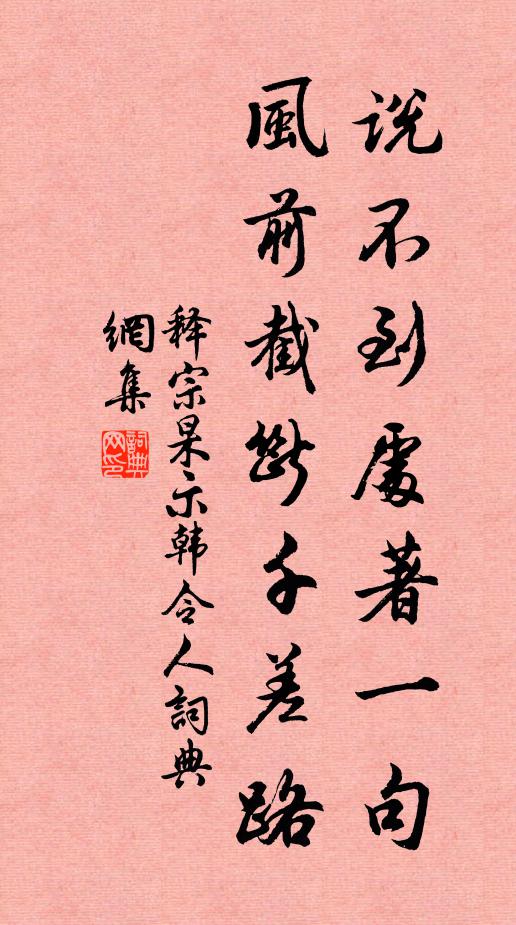 說不到處著一句
風前截斷千差路
释宗杲示韩令人詞典
網集
詞典網印